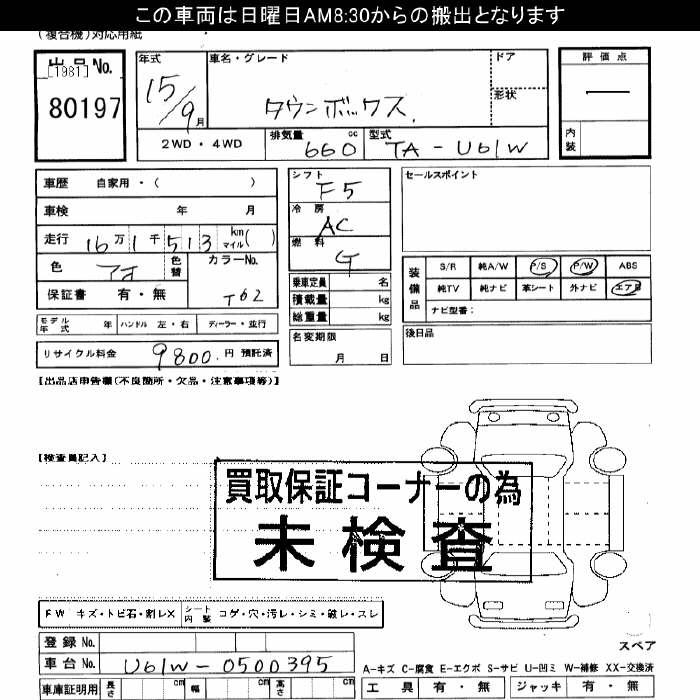 この車両は日曜日AM8:30からの搬出となります
(複合機)対応用紙
出品No.
[1981]
80197
年式
15/9月
車名・グレード
タウンボックス
ドア
形状
評価点
―
内装
2WD・4WD
排気量 660 cc
型式 TA-U61W
車歴 自家用・( )
車検 年 月
走行 16万1千513 km マイル( )
色 アオ 色替
カラーNo. T62
保証書 有・無
シフト F5
冷房 AC
燃料 G
乗車定員 名
積載量 kg
総重量 kg
セールスポイント
装備品 S/R 純A/W P/S P/W ABS
純TV 純ナビ 革シート 外ナビ エアB
ナビ型番:
モデル年式 年 ハンドル 左・右 ディーラー・並行
名変期限 月 日
後日品
リサイクル料金 9800.円 預託済
【出品店申告欄(不良箇所・欠品・注意事項等)】
【検査員記入】
買取保証コーナーの為
未検査
FW キズ・トビ石・割レX シート内装 コゲ・穴・汚レ・シミ・破レ・スレ
登録No.
車台No. U61W-0500395
スペア
A-キズ C-腐食 E-エクボ S-サビ U-凹ミ W-補修 XX-交換済
車庫証明用 長さ cm 幅 cm 高さ cm
工具 有・無 ジャッキ 有・無